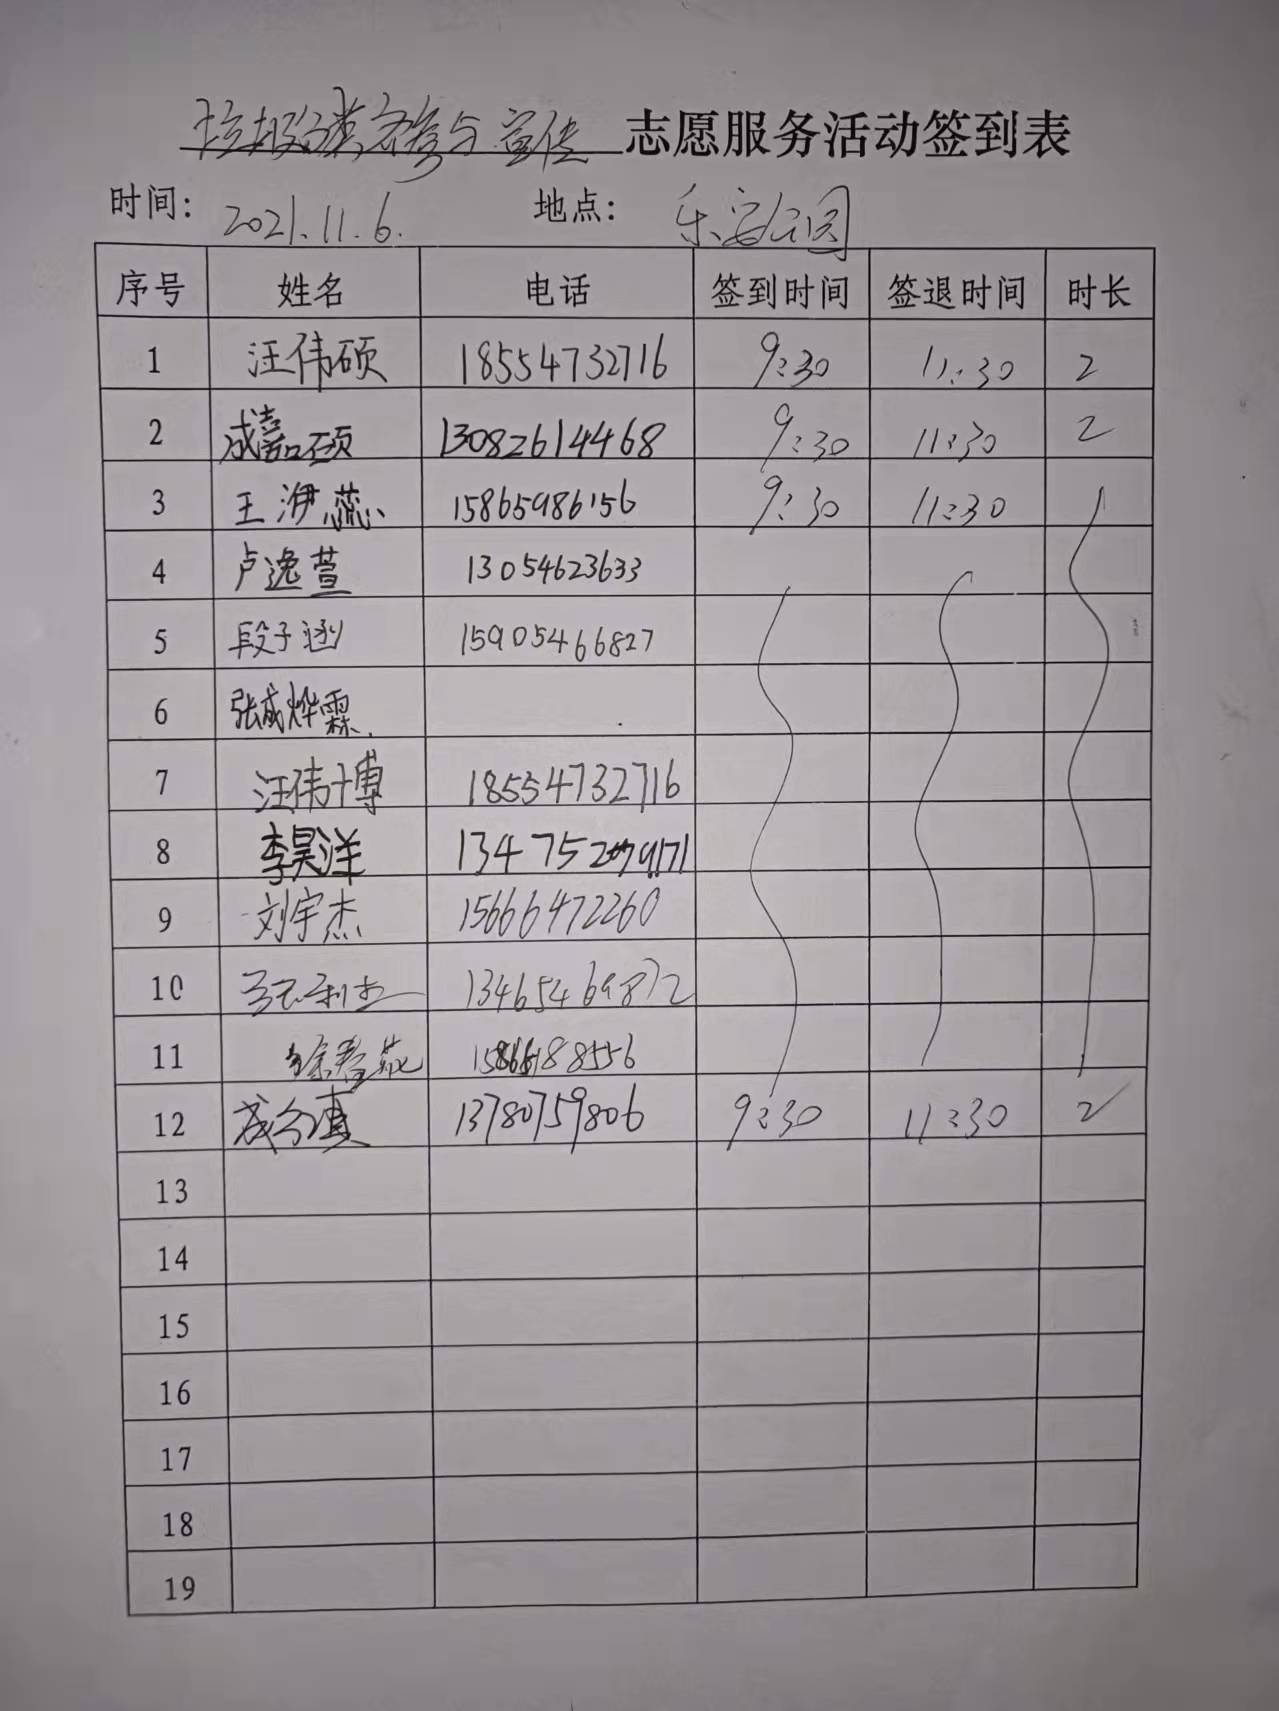 垃圾分类我参与 宣传 志愿服务活动签到表
时间: 2021.11.6. 地点: 乐安公园
序号 姓名 电话 签到时间 签退时间 时长
1 汪伟硕 18554732716 9:30 11:30 2
2 成嘉硕 13082614468 9:30 11:30 2
3 王渺蕊 15865986156 9:30 11:30
4 卢逸萱 13054623633
5 段子涵 15905466827
6 张成烨霖
7 汪伟博 18554732716
8 李昊洋 1347529171
9 刘宇杰 15666472260
10 13465469872
11 徐春燕 15866188556
12 13780759806 9:30 11:30 2
13
14
15
16
17
18
19